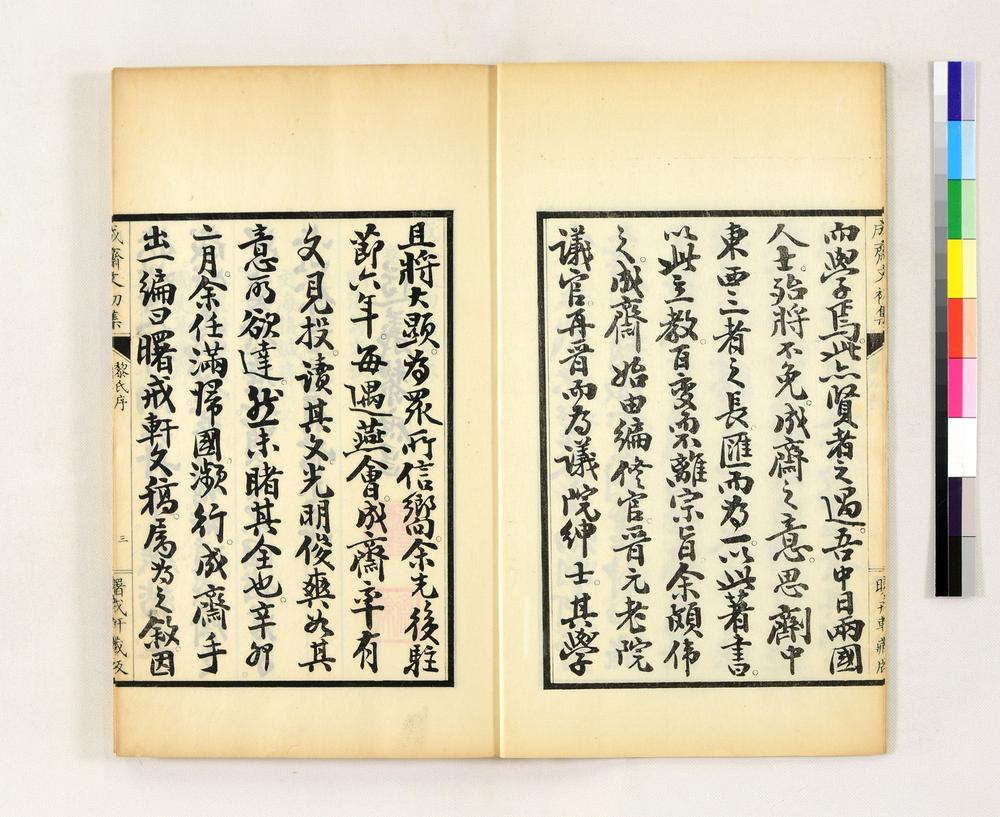 而學焉。此亦賢者之過。吾中日兩國
人士。殆將不免。成齋之意。思劑中
東西三者之長。匯而為一。以此著書。
以此立教。百變而不離宗旨。余頗偉
之。成齋始由編修官。晉元老院
議官。再晉而為議院紳士。其學
成齋文初集
且將大顯。為眾所信嚮。余先後駐
節六年。每遇燕會。成齋率有
文見投。讀其文。光明俊爽。如其
意所欲達。然未睹其全也。辛卯
二月。余任滿帰國。瀕行。成齋手
出一編曰曙戒軒文稿。屬為之敘。因
成齋文初集
黎氏序
三
曙戒軒藏版